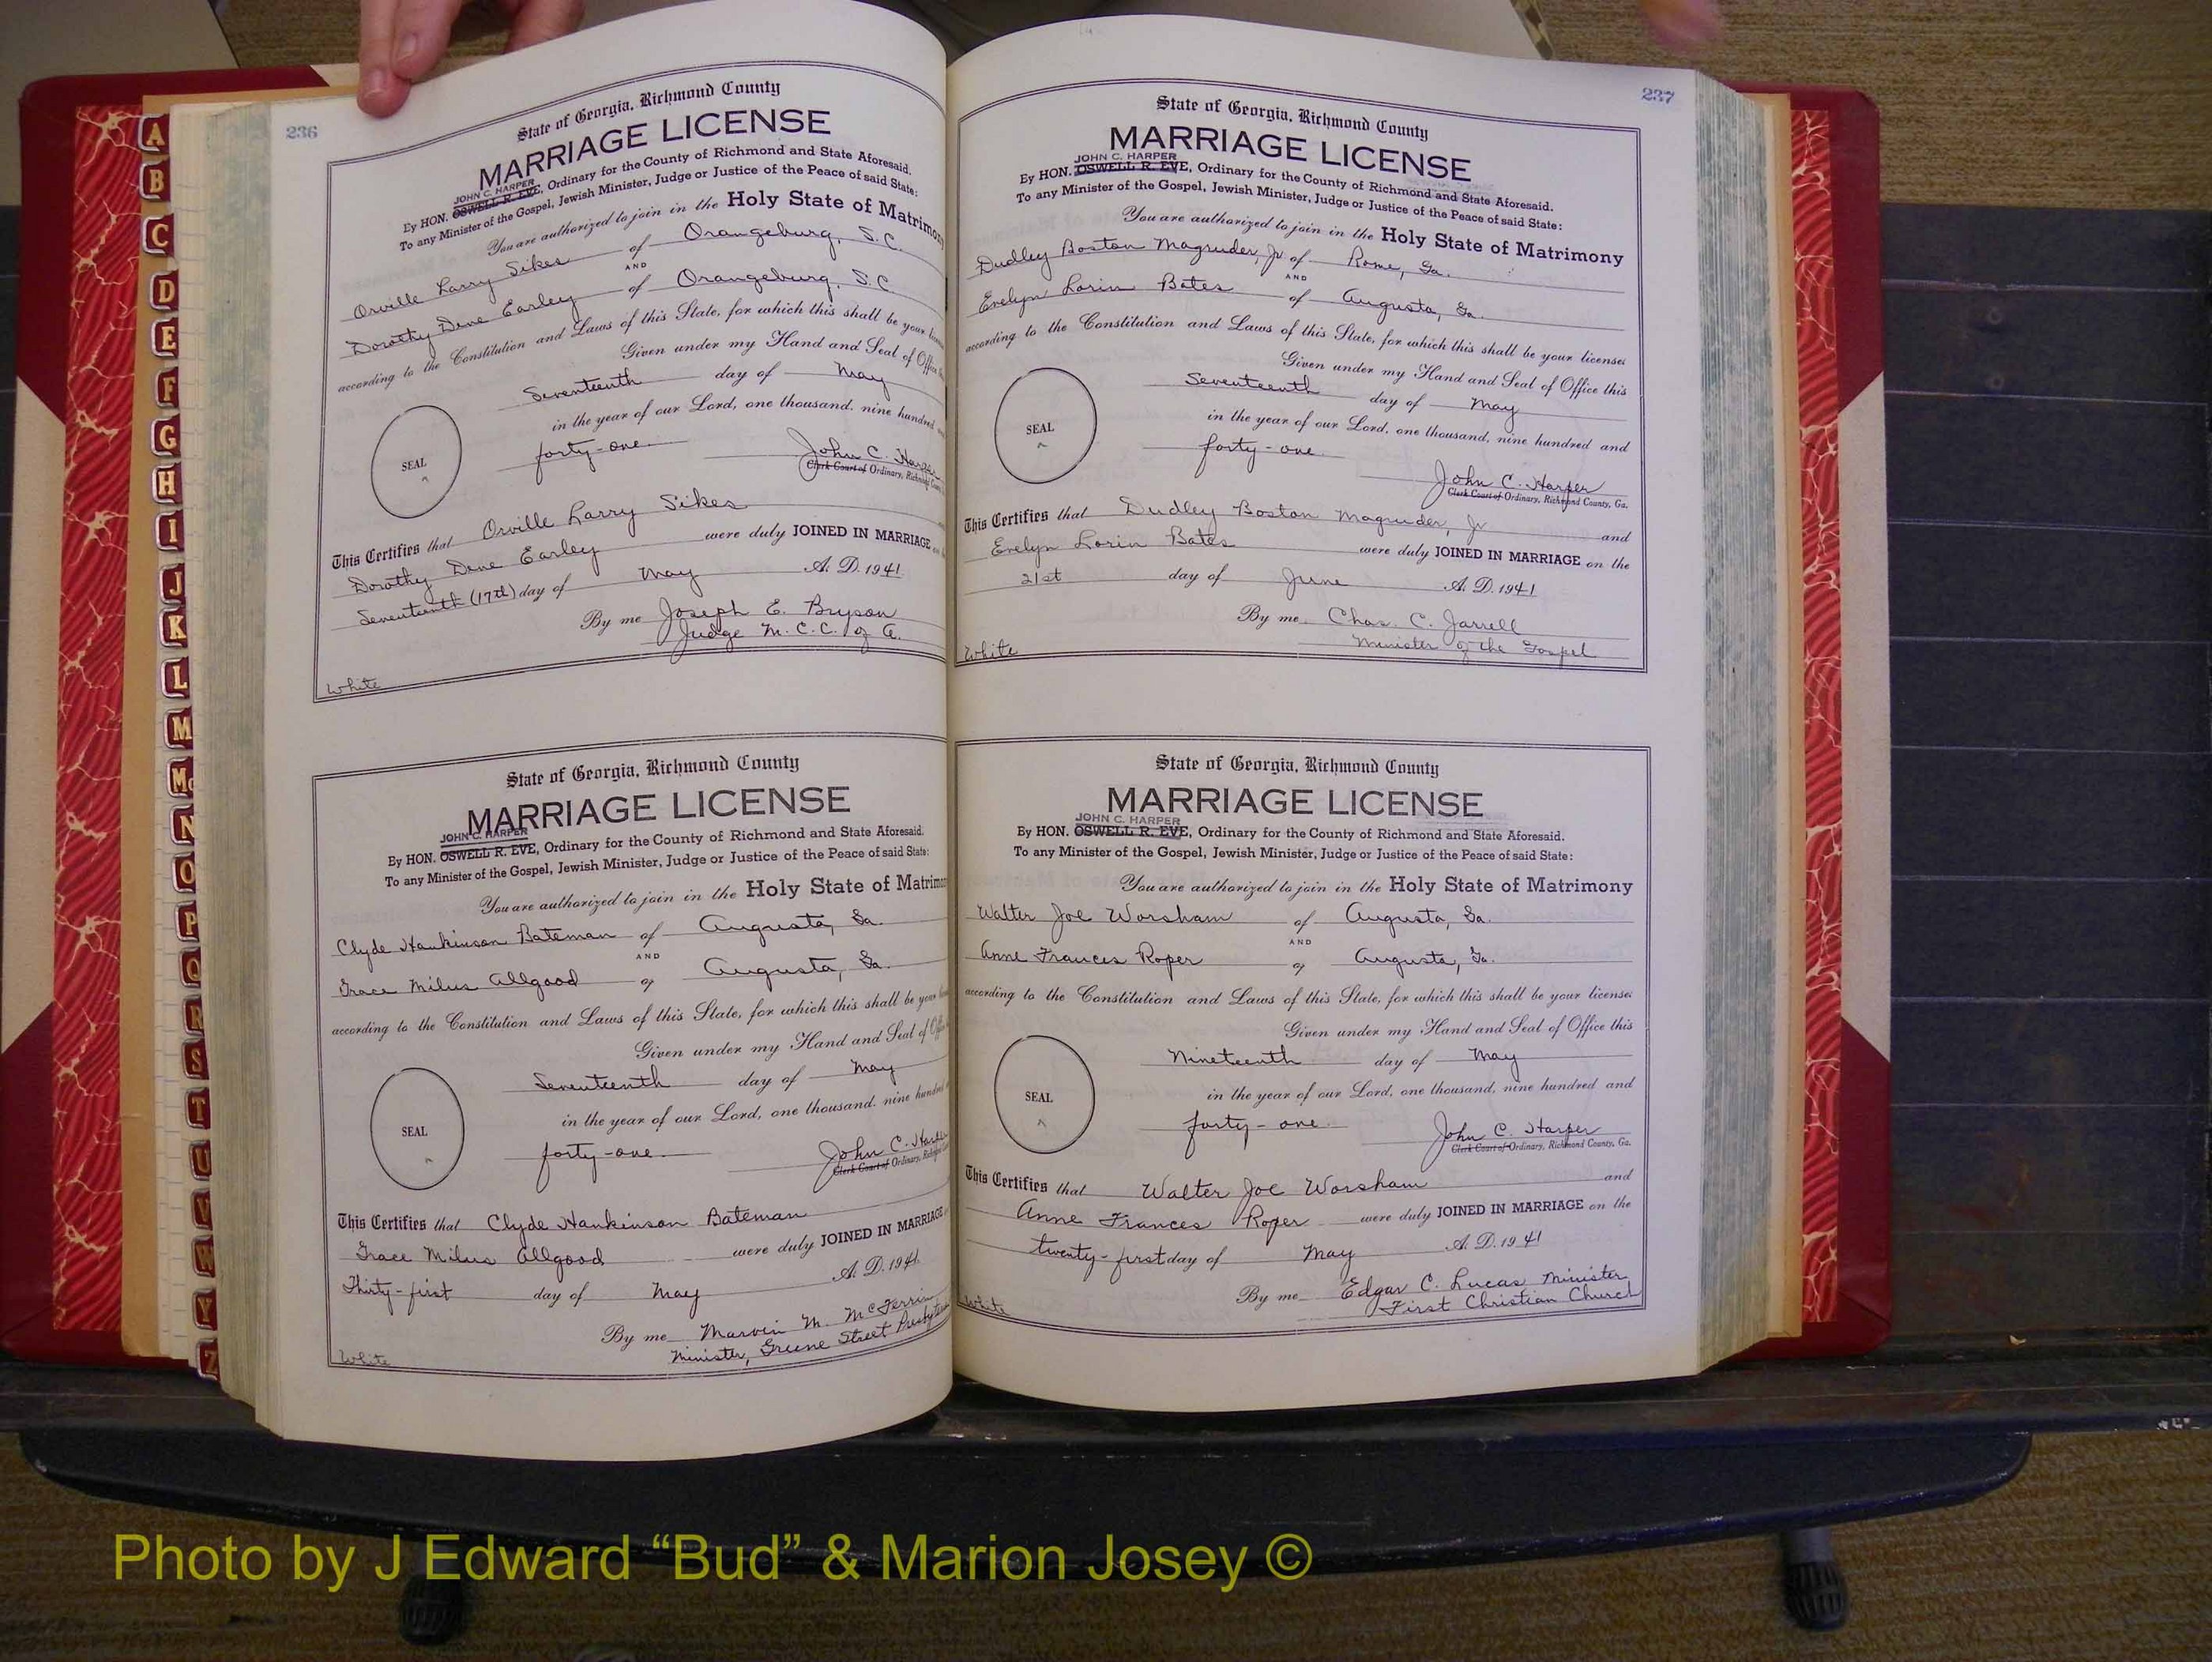 236
State of Georgia, Richmond County
MARRIAGE LICENSE
JOHN C. HARPER
By HON. OSWELL R. EVE, Ordinary for the County of Richmond and State Aforesaid.
To any Minister of the Gospel, Jewish Minister, Judge or Justice of the Peace of said State:
You are authorized to join in the Holy State of Matrimony
Orville Larry Sikes of Orangeburg, S.C.
AND
Dorothy Dene Earley of Orangeburg, S.C.
according to the Constitution and Laws of this State, for which this shall be your
Given under my Hand and Seal of Office
Seventeenth day of May
in the year of our Lord, one thousand, nine hundred
forty-one
John C. Harper
Clerk Court of Ordinary, Richmond
SEAL
This Certifies that Orville Larry Sikes
Dorothy Dene Earley were duly JOINED IN MARRIAGE
Seventeenth (17th) day of May A. D. 1941
By me Joseph E. Bryson
Judge M. C. C. of A.
White
State of Georgia, Richmond County
MARRIAGE LICENSE
JOHN C. HARPER
By HON. OSWELL R. EVE, Ordinary for the County of Richmond and State Aforesaid.
To any Minister of the Gospel, Jewish Minister, Judge or Justice of the Peace of said State:
You are authorized to join in the Holy State of Matrimony
Clyde Hankinson Bateman of Augusta, Ga.
AND
Grace Milus Allgood of Augusta, Ga.
according to the Constitution and Laws of this State, for which this shall be your
Given under my Hand and Seal of
Seventeenth day of May
in the year of our Lord, one thousand, nine hundred
forty-one
John C. Harper
Clerk Court of Ordinary,
SEAL
This Certifies that Clyde Hankinson Bateman
Grace Milus Allgood were duly JOINED IN MARRIAGE
Thirty-first day of May A. D. 1941
By me Marvin M. McFerrin
Minister, Greene Street
White
237
State of Georgia, Richmond County
MARRIAGE LICENSE
JOHN C. HARPER
By HON. OSWELL R. EVE, Ordinary for the County of Richmond and State Aforesaid.
To any Minister of the Gospel, Jewish Minister, Judge or Justice of the Peace of said State:
You are authorized to join in the Holy State of Matrimony
Dudley Boston Magruder, Jr of Rome, Ga.
AND
Evelyn Lorin Bates of Augusta, Ga.
according to the Constitution and Laws of this State, for which this shall be your license:
Given under my Hand and Seal of Office this
Seventeenth day of May
in the year of our Lord, one thousand, nine hundred and
forty-one
John C. Harper
Clerk Court of Ordinary, Richmond County, Ga.
SEAL
This Certifies that Dudley Boston Magruder, Jr and
Evelyn Lorin Bates were duly JOINED IN MARRIAGE on the
21st day of June A. D. 1941
By me Chas. C. Jarrell
Minister of the Gospel
White
State of Georgia, Richmond County
MARRIAGE LICENSE
JOHN C. HARPER
By HON. OSWELL R. EVE, Ordinary for the County of Richmond and State Aforesaid.
To any Minister of the Gospel, Jewish Minister, Judge or Justice of the Peace of said State:
You are authorized to join in the Holy State of Matrimony
Walter Joe Worsham of Augusta, Ga.
AND
Anne Frances Roper of Augusta, Ga.
according to the Constitution and Laws of this State, for which this shall be your license:
Given under my Hand and Seal of Office this
Nineteenth day of May
in the year of our Lord, one thousand, nine hundred and
forty-one
John C. Harper
Clerk Court of Ordinary, Richmond County, Ga.
SEAL
This Certifies that Walter Joe Worsham and
Anne Frances Roper were duly JOINED IN MARRIAGE on the
twenty-first day of May A. D. 1941
By me Edgar C. Lucas Minister
First Christian Church
White
A
B
C
D
E
F
G
H
I
J
K
L
M
Mc
N
O
P
Q
R
S
T
U
V
W
Y
Z
Photo by J Edward “Bud” & Marion Josey ©